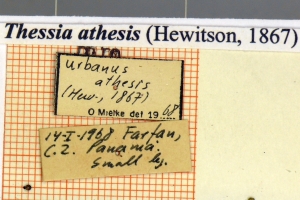 Thessia athesis (Hewitson, 1867)
Urbanus
athesis
(Hew., 1867)
O Mielke det 1968
14-I-1968 Farfan,
C.Z. Panamá.
Small leg.